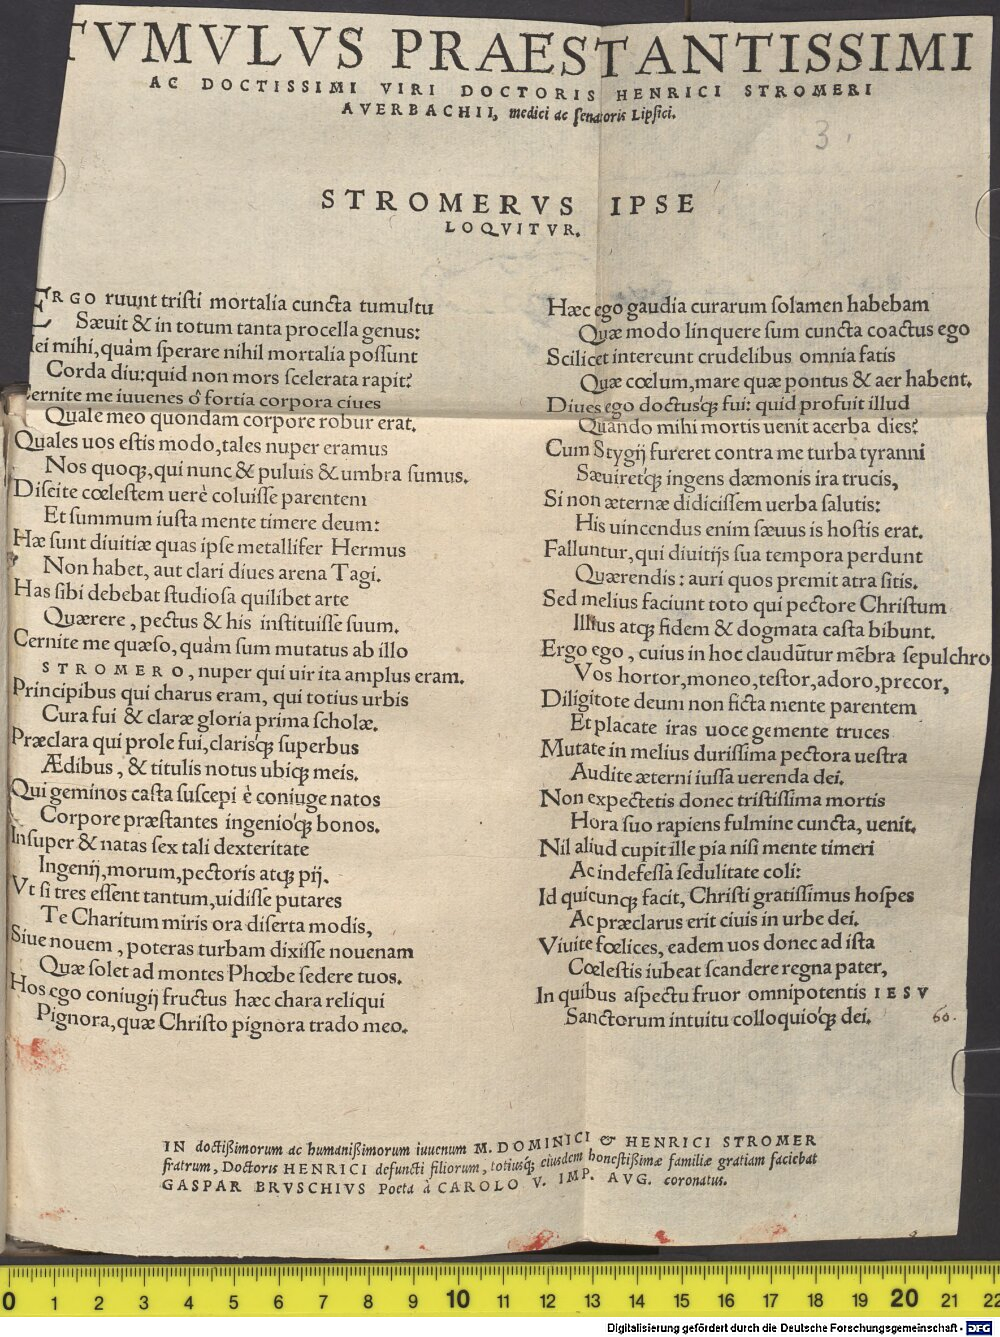 TVMVLVS PRAESTANTISSIMI
AC DOCTISSIMI VIRI DOCTORIS HENRICI STROMERI
AVERBACHII, medici ac senatoris Lipsici.
3.
STROMERVS IPSE
LOQVITVR.
ERGO ruunt tristi mortalia cuncta tumultu
Sæuit & in totum tanta procella genus:
Hei mihi, quàm sperare nihil mortalia possunt
Corda diu: quid non mors scelerata rapit?
Cernite me iuuenes ô fortia corpora ciues
Quale meo quondam corpore robur erat.
Quales uos estis modo, tales nuper eramus
Nos quoqꝫ, qui nunc & puluis & umbra sumus.
Discite cœlestem uerè coluisse parentem
Et summum iusta mente timere deum:
Hæ sunt diuitiæ quas ipse metallifer Hermus
Non habet, aut clari diues arena Tagi.
Has sibi debebat studiosa quilibet arte
Quærere, pectus & his instituisse suum.
Cernite me quæso, quàm sum mutatus ab illo
STROMERO, nuper qui uir ita amplus eram.
Principibus qui charus eram, qui totius urbis
Cura fui & claræ gloria prima scholæ.
Præclara qui prole fui, claris'qꝫ superbus
Ædibus, & titulis notus ubiqꝫ meis.
Qui geminos casta suscepi è coniuge natos
Corpore præstantes ingenio'qꝫ bonos.
Insuper & natas sex tali dexteritate
Ingenij, morum, pectoris atqꝫ pij.
Vt si tres essent tantum, uidisse putares
Te Charitum miris ora diserta modis,
Siue nouem, poteras turbam dixisse nouenam
Quæ solet ad montes Phœbe sedere tuos.
Hos ego coniugij fructus hæc chara reliqui
Pignora, quæ Christo pignora trado meo.
Hæc ego gaudia curarum solamen habebam
Quæ modo linquere sum cuncta coactus ego
Scilicet intereunt crudelibus omnia fatis
Quæ cœlum, mare quæ pontus & aer habent.
Diues ego doctus'qꝫ fui: quid profuit illud
Quando mihi mortis uenit acerba dies?
Cum Stygij fureret contra me turba tyranni
Sæuiret'qꝫ ingens dæmonis ira trucis,
Si non æternæ didicissem uerba salutis:
His uincendus enim sæuus is hostis erat.
Falluntur, qui diuitijs sua tempora perdunt
Quærendis: auri quos premit atra sitis.
Sed melius faciunt toto qui pectore Christum
Illius atqꝫ fidem & dogmata casta bibunt.
Ergo ego, cuius in hoc claudūtur mēbra sepulchro
Vos hortor, moneo, testor, adoro, precor,
Diligitote deum non ficta mente parentem
Et placate iras uoce gemente truces
Mutate in melius durissima pectora uestra
Audite æterni iussa uerenda dei.
Non expectetis donec tristissima mortis
Hora suo rapiens fulmine cuncta, uenit.
Nil aliud cupit ille pia nisi mente timeri
Ac indefessa sedulitate coli:
Id quicunqꝫ facit, Christi gratissimus hospes
Ac præclarus erit ciuis in urbe dei.
Viuite fœlices, eadem uos donec ad ista
Cœlestis iubeat scandere regna pater,
In quibus aspectu fruor omnipotentis IESV
Sanctorum intuitu colloquio'qꝫ dei.
60.
IN doctißimorum ac humanißimorum iuuenum M. DOMINICI & HENRICI STROMER
fratrum, Doctoris HENRICI defuncti filiorum, totiusq́ꝫ eiusdem honestißimæ familiæ gratiam faciebat
GASPAR BRVSCHIVS Poeta à CAROLO V. IMP. AVG. coronatus.
0 1 2 3 4 5 6 7 8 9 10 11 12 13 14 15 16 17 18 19 20 21 22
Digitalisierung gefördert durch die Deutsche Forschungsgemeinschaft - DFG